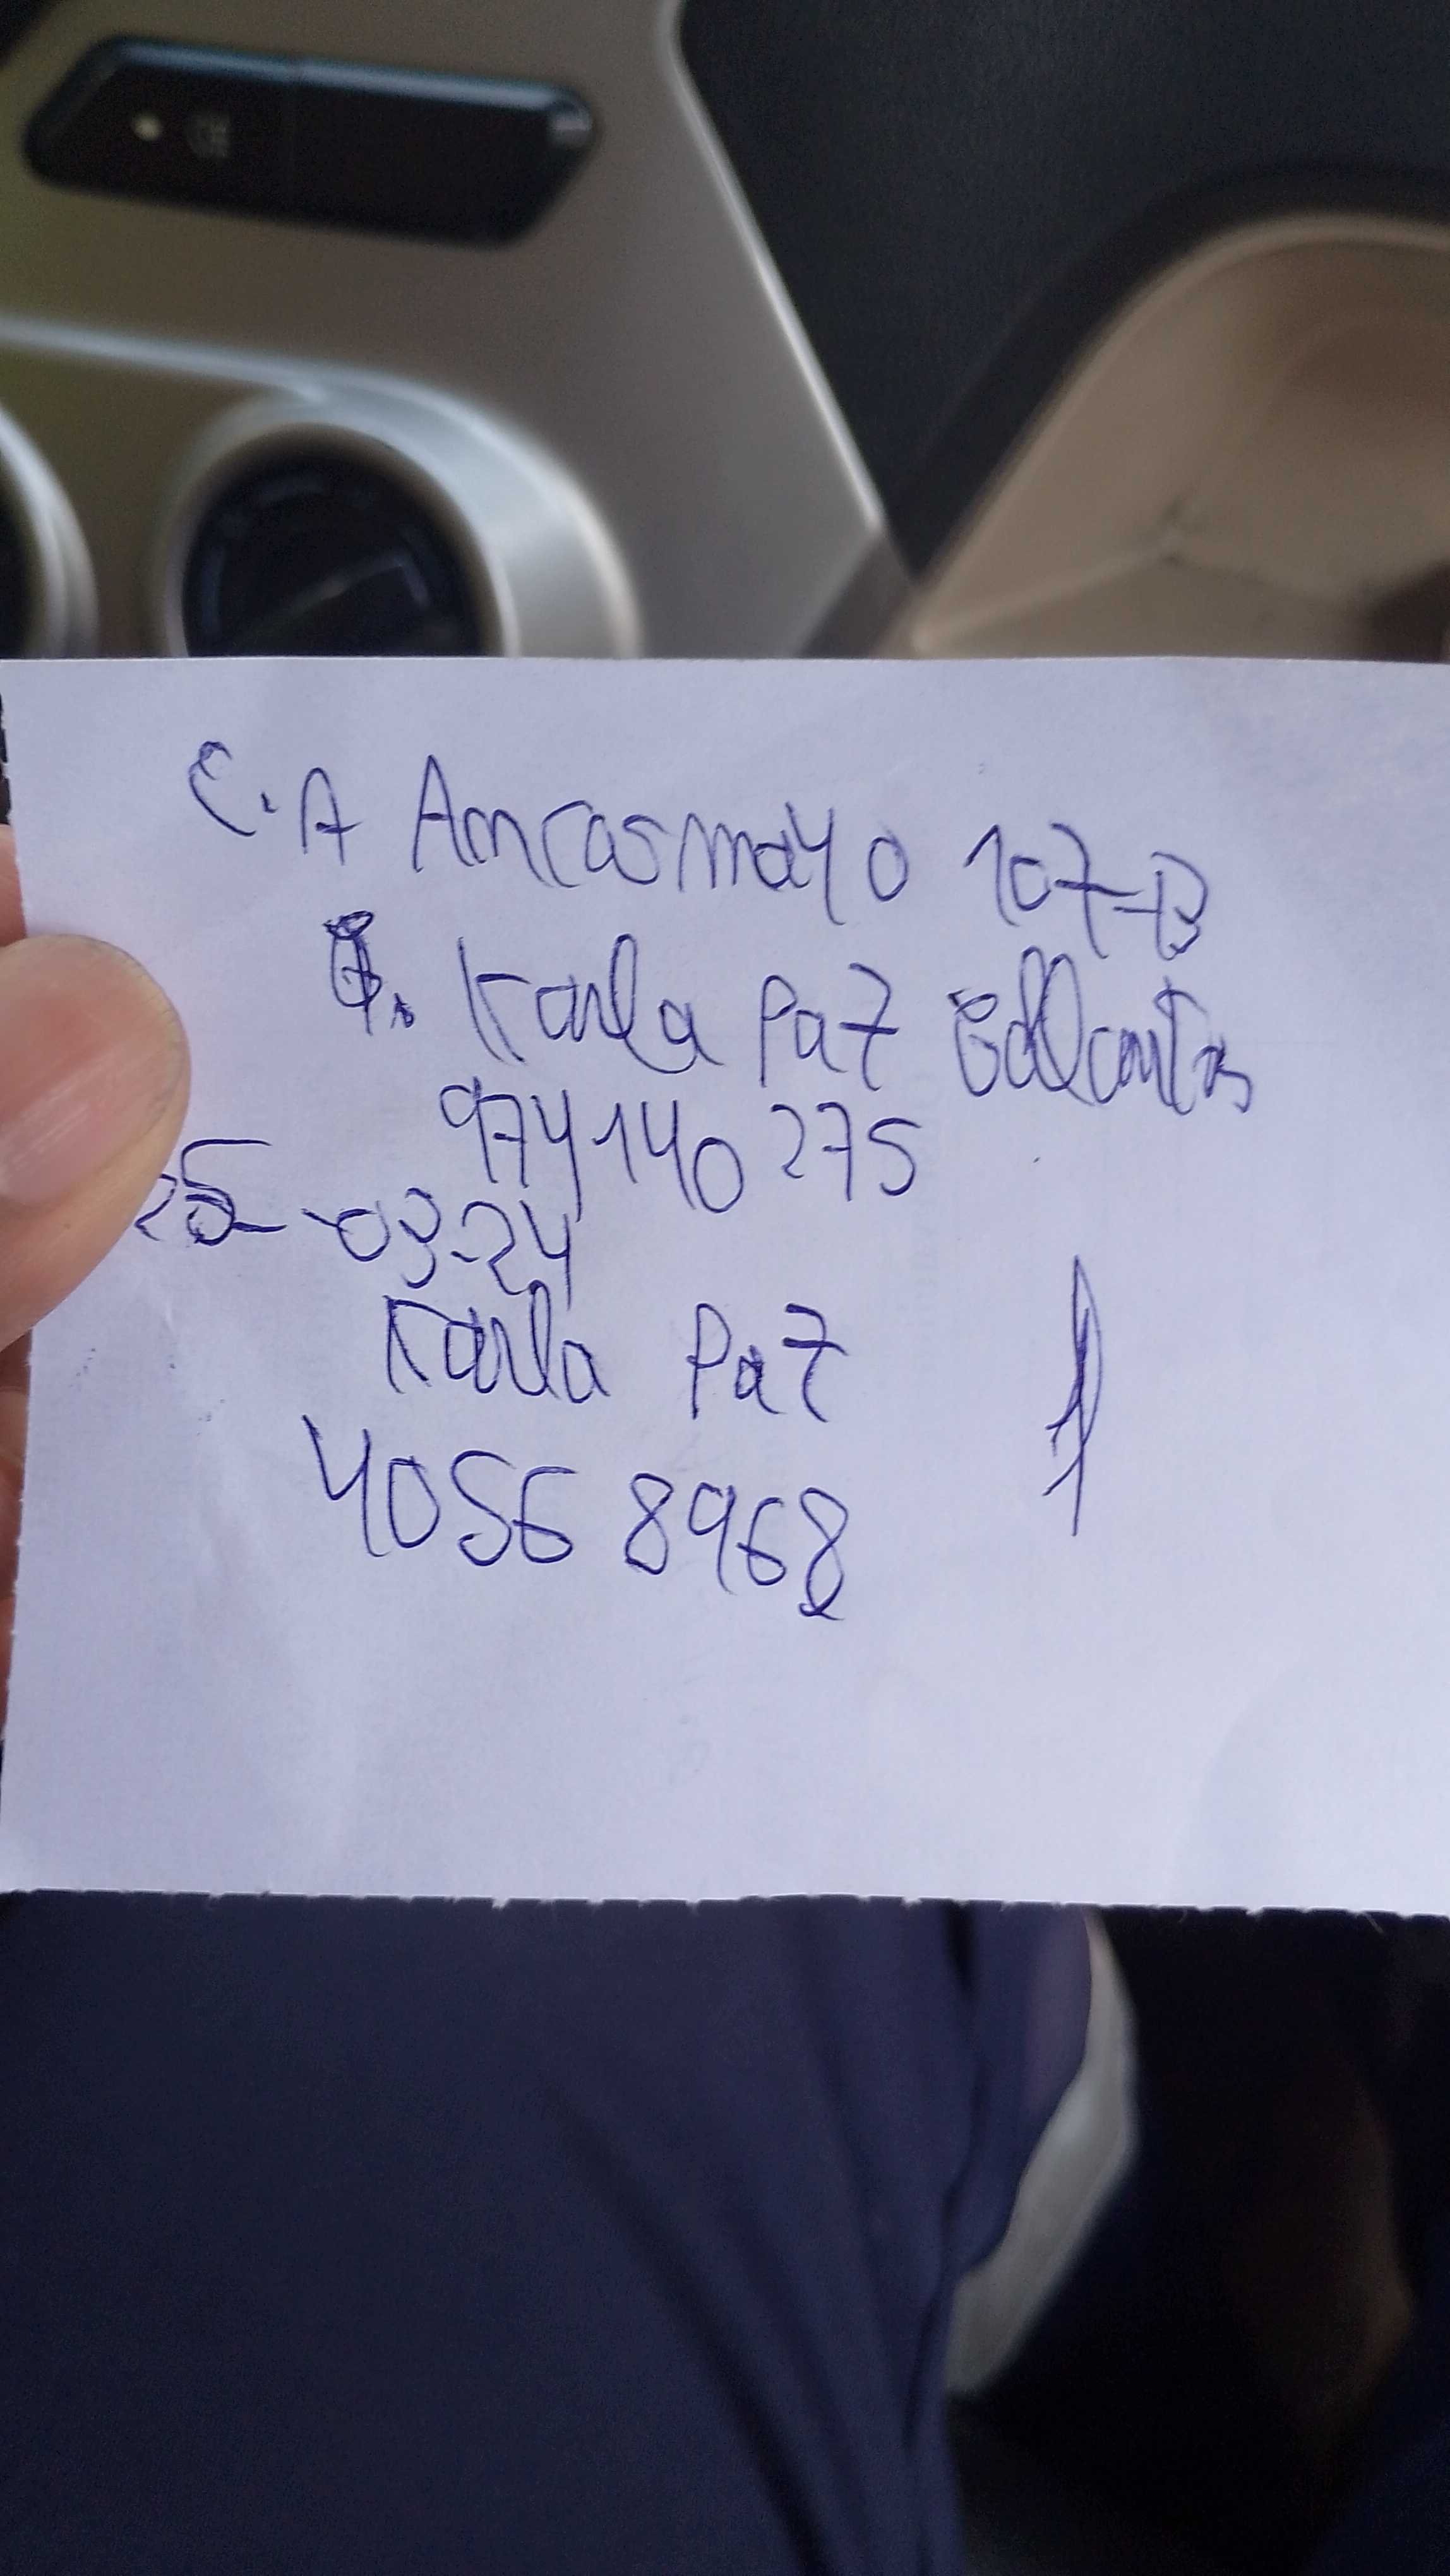 C.A Ancasmayo 107-B
Karla Paz
974140275
25-03-24
Karla Paz
40568968